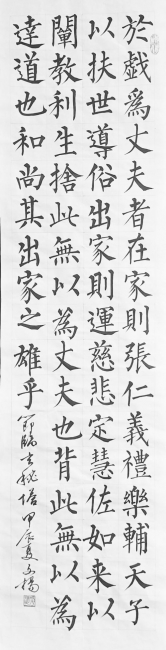 於戯爲丈夫者在家則張仁義禮樂輔天子
以扶世導俗出家則運慈悲定慧佐如来以
闡教利生捨此無以為丈夫也背此無以為
達道也和尚其出家之雄乎 節臨玄秘塔 甲辰夏